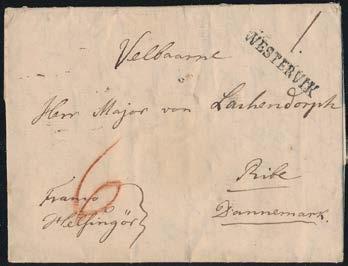 1.
WESTERVIK
Velbaarne
Herr Major von Lashendorph
Ribe
Dannemark.
6
Franco
Helsingör